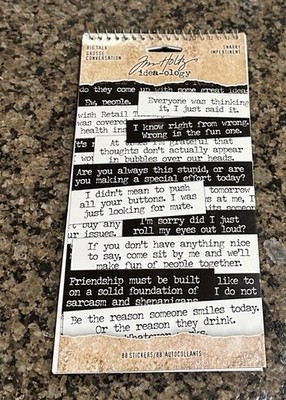 BIG TALK
GROSSE
CONVERSATION
SNARKY
IMPERTINENT
Tim Holtz
idea-ology
do they come up with some great ideas
Ew, people.
Everyone was thinking
it, I just said it.
wish Retail T
was covered
health ins
I know right from wrong.
Wrong is the fun one.
it's
At times I'm grateful that
thoughts don't actually appear
in bubbles over our heads.
Are you always this stupid, or are
you making a special effort today?
I didn't mean to push
all your buttons. I was
just looking for mute.
tomorrow
s at me, I
its someon
I'm sorry did I just
roll my eyes out loud?
t buy any
ur issues.
If you don't have anything nice
to say, come sit by me and we'll
make fun of people together.
Friendship must be built
on a solid foundation of
sarcasm and shenanigans.
like to
I do not
Be the reason someone smiles today.
Or the reason they drink.
Whatever
88 STICKERS/88 AUTOCOLLANTS